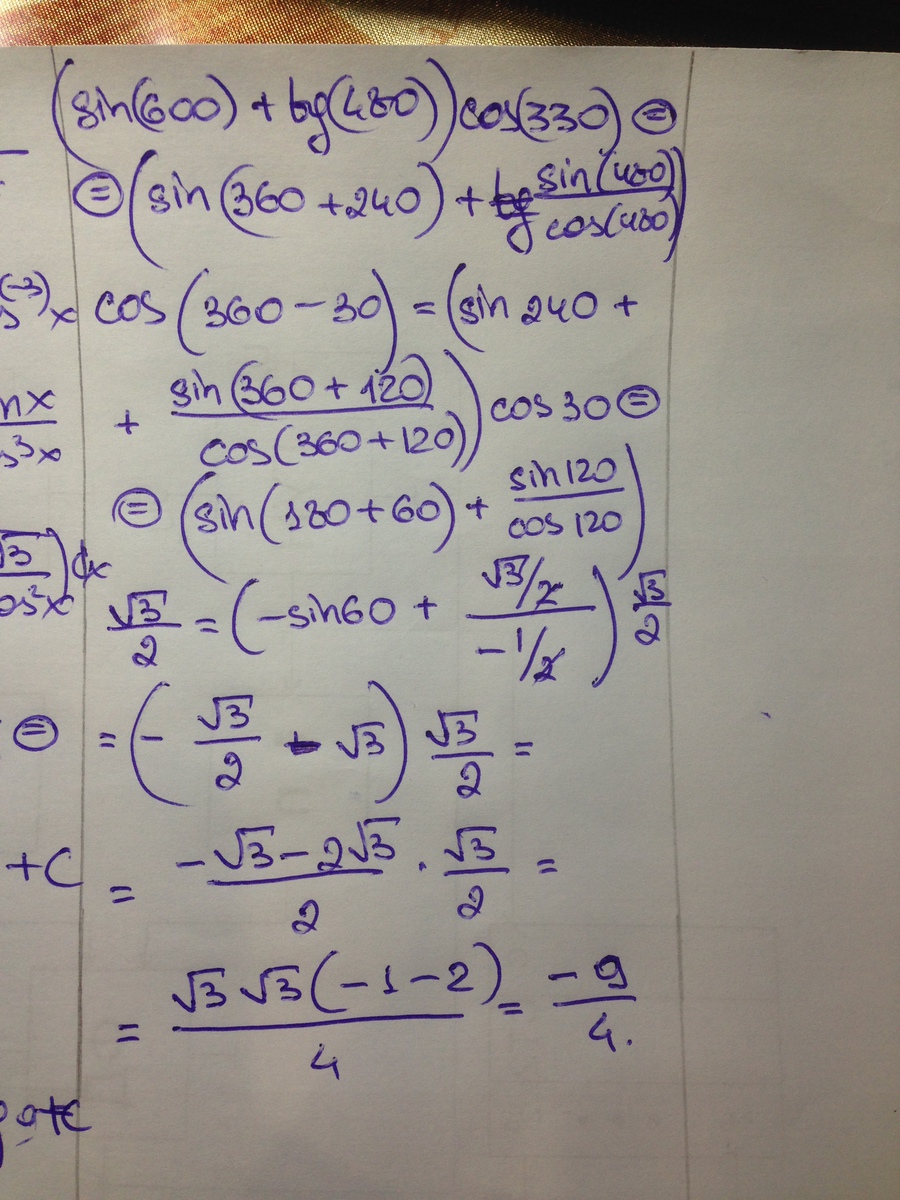 (sin(600) + tg(480)) cos(330) ⊜
⊜ (sin(360 + 240) + sin(480)/cos(480))
cos(360 − 30) = (sin 240 +
+ sin(360 + 120)/cos(360 + 120)) cos 30 ⊜
⊜ (sin(180 + 60) + sin 120/cos 120)
√3/2 = (−sin 60 + (√3/2)/(−1/2)) √3/2
= (− √3/2 − √3) √3/2 =
= (−√3 − 2√3)/2 · √3/2 =
= √3 √3 (−1 − 2)/4 = −9/4.
(-3)
x
nx
s³x
√3
os²x
) dx
⊜
+ C
+C